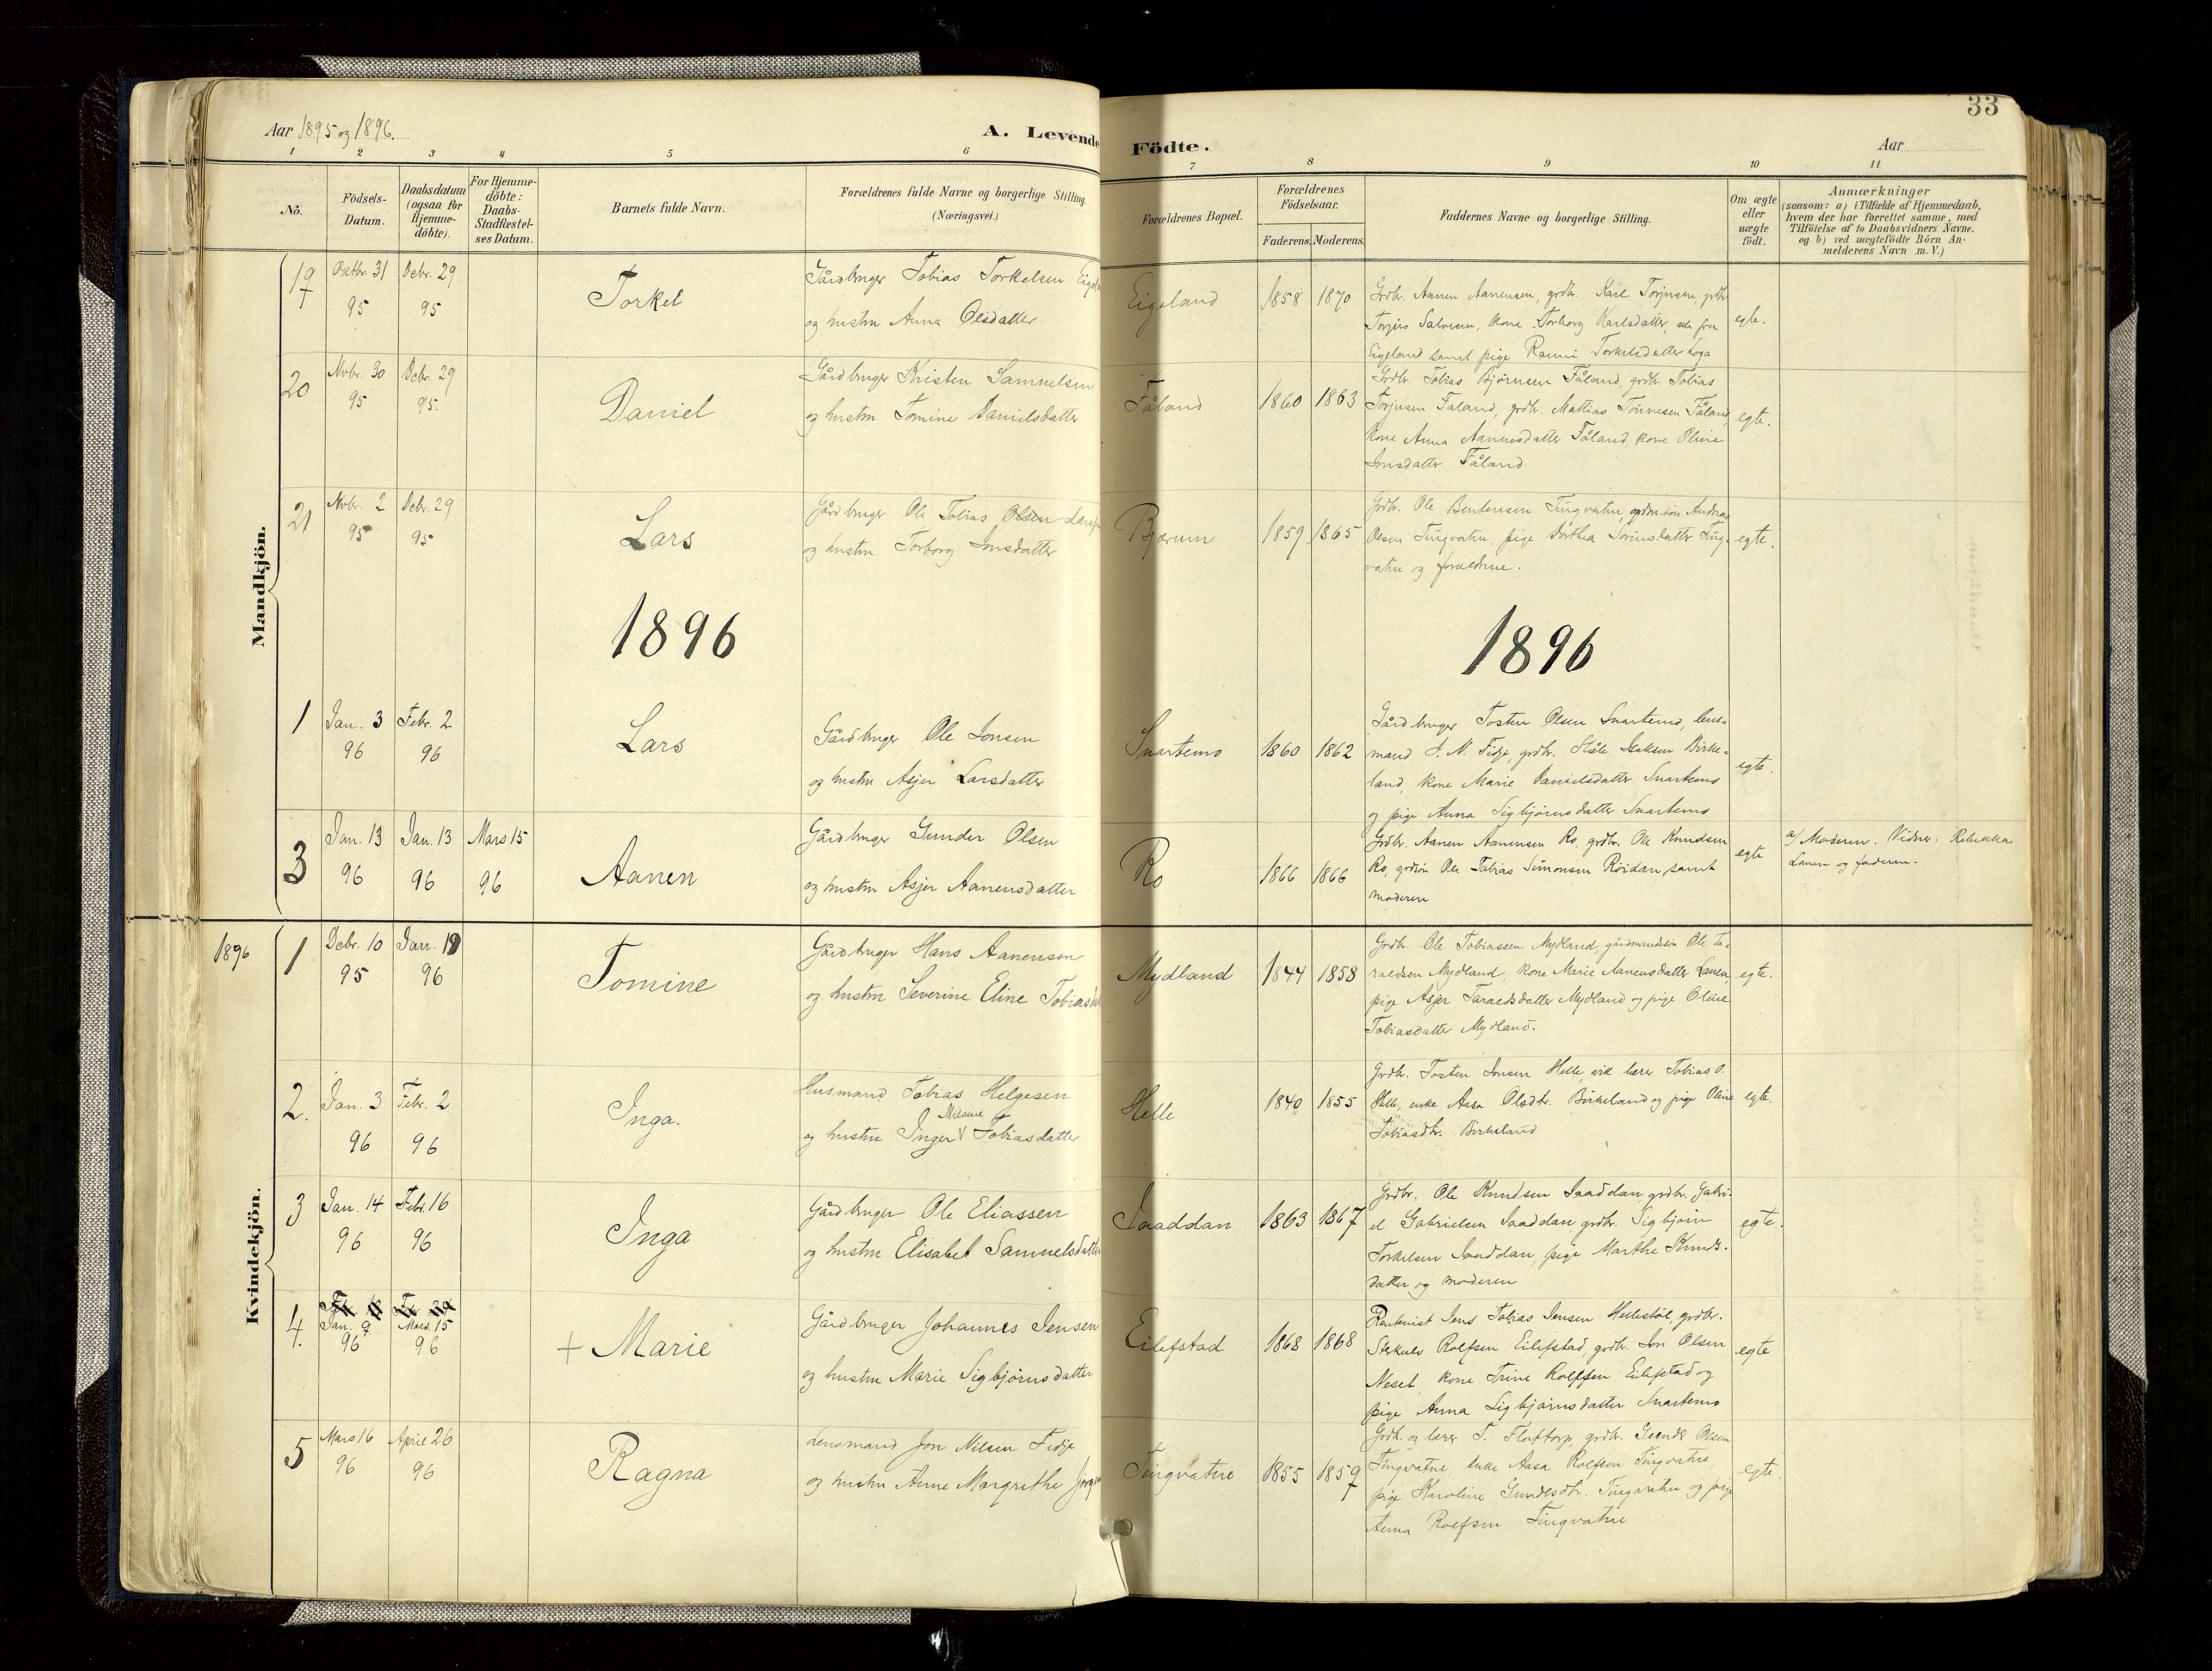 33
Aar 1895 og 1896.
A. Levende
Födte.
Aar
1 2 3 4 5 6
7 8 9 10 11
No.
Födsels-
Datum.
Daabsdatum
(ogsaa for
Hjemme-
döbte).
For Hjemme-
döbte:
Daabs-
Stadfæstel-
ses Datum.
Barnets fulde Navn.
Forældrenes fulde Navne og borgerlige Stilling.
(Næringsvei.)
Forældrenes Bopæl.
Forældrenes
Födselsaar.
Faderens. Moderens.
Faddernes Navne og borgerlige Stilling.
Om ægte
eller
uægte
födt.
Anmærkninger
(saasom: a) i Tilfælde af Hjemmedaab,
hvem der har forrettet samme, med
Tilföielse af to Daabsvidners Navne.
og b) ved uægtefödte Börn An-
melderens Navn m.V.)
Mandkjön.
19 Octbr. 31 Debr. 29
95 95
Torkel
Gårdbruger Tobias Torkelsen
og hustru Anna Olsdatter
Eigeland 1858 1870
Grdbr. Aanen Aanensen, grdbr. Karl Torjusen, grdbr.
Torjus Salvesen, kone Torborg Karlsdatter, alle fra
Eigeland samt pige Rauni Torkelsdatter Loga
egte.
20 Novbr. 30 Debr. 29
95 95.
Daniel
Gårdbruger Kristen Samuelsen
og hustru Tomine Danielsdatter
Fåland 1860 1863
Grdbr. Tobias Bjørnsen Fåland, grdbr. Tobias
Torjusen Faland, grdbr. Mathias Tønnesen Fåland,
kone Anna Aanensdatter Fåland, kone Oline
Jonsdatter Fåland
egte.
21 Novbr. 2 Debr. 29
95 95
Lars
Gårdbruger Ole Tobias Olsen
og hustru Torborg Jonsdatter
Bjærum 1859 1865
Grdbr. Ole Bentensen Tingvatn, grdm.søn Andreas
Olsen Tingvatn, pige Dorthea Sørinsdatter Ting-
vatne og forældrene.
egte.
1896
1896
1 Jan. 3 Febr. 2
96 96
Lars
Gårdbruger Ole Jonsen
og hustru Asjer Larsdatter
Snartemo 1860 1862
Gårdbruger Tosten Olsen Snartemo, lens-
mand J. N. Fidje, grdbr. Ståle Isaksen Birke-
land, kone Marie Danielsdatter Snartemo
og pige Anna Sigbjørnsdatter Snartemo
egte.
3 Jan. 13 Jan. 13 Mars 15
96 96 96
Aanen
Gårdbruger Gunder Olsen
og hustru Asjer Aanensdatter
Ro 1866 1866
Grdbr. Aanen Aanensen Ro, grdbr. Ole Knudsen
Ro, grdsøn Ole Tobias Simonsen Röidan, samt
moderen
egte
a/ Moderen. Vidner: Rebekka
Lauen og faderen.
1896
Kvindekjön.
1 Debr. 10 Jan. 19
95 96
Tomine
Gårdbruger Hans Aanensen
og hustru Severine Eline Tobiasdatter
Mydland 1844 1858
Grdbr. Ole Tobiassen Mydland, gårdmandssøn Ole Ta-
raldsen Mydland, kone Marie Aanensdatter Lauen,
pige Asjer Taraldsdatter Mydland og pige Oline
Tobiasdatter Mydland.
egte.
2. Jan. 3 Febr. 2
96 96
Inga.
Husmand Tobias Helgesen
Nilsine
og hustru Inger Tobiasdatter
Helle 1840 1855
Grdbr. Tosten Jonsen Helle, vik. lærer Tobias O.
Helle, enke Aasa Olsdtr. Birkeland og pige Oline
Tobiasdtr. Birkeland
egte.
3 Jan. 14 Febr. 16
96 96
Inga
Gårdbruger Ole Eliassen
og hustru Elisabet Samuelsdatter
Saaddan 1863 1867
Grdbr. Ole Knudsen Saaddan, grdbr. Gabri-
el Gabrielsen Saaddan, grdbr. Sigbjørn
Torkelsen Saaddan, pige Marthe Knuds-
datter og moderen
egte.
4. Jan. 9 Mars. 15
96 96
+ Marie
Gårdbruger Johannes Jensen
og hustru Marie Sigbjørnsdatter
Eilefstad 1868 1868
Rentenist Jens Tobias Jensen Hellestöl, grdbr.
Sterkule Rolfsen Eilefstad, grdbr. Jon Olsen
Neset, kone Trine Rolfsen Eilefstad og
pige Anna Sigbjørnsdatter Snartemo
egte
5 Mars 16 April 26
96 96
Ragna
Lensmand Jon Nilsen Fidje
og hustru Anne Margrethe
Tingvatne 1855 1859
Grdbr. og lærer T. Flottorp, grdbr. Gunder Olsen
Tingvatne, enke Aasa Rolfsen Tingvatne,
pige Karoline Gundersdtr. Tingvatn og pige
Anna Rolfsen Tingvatne
egte.